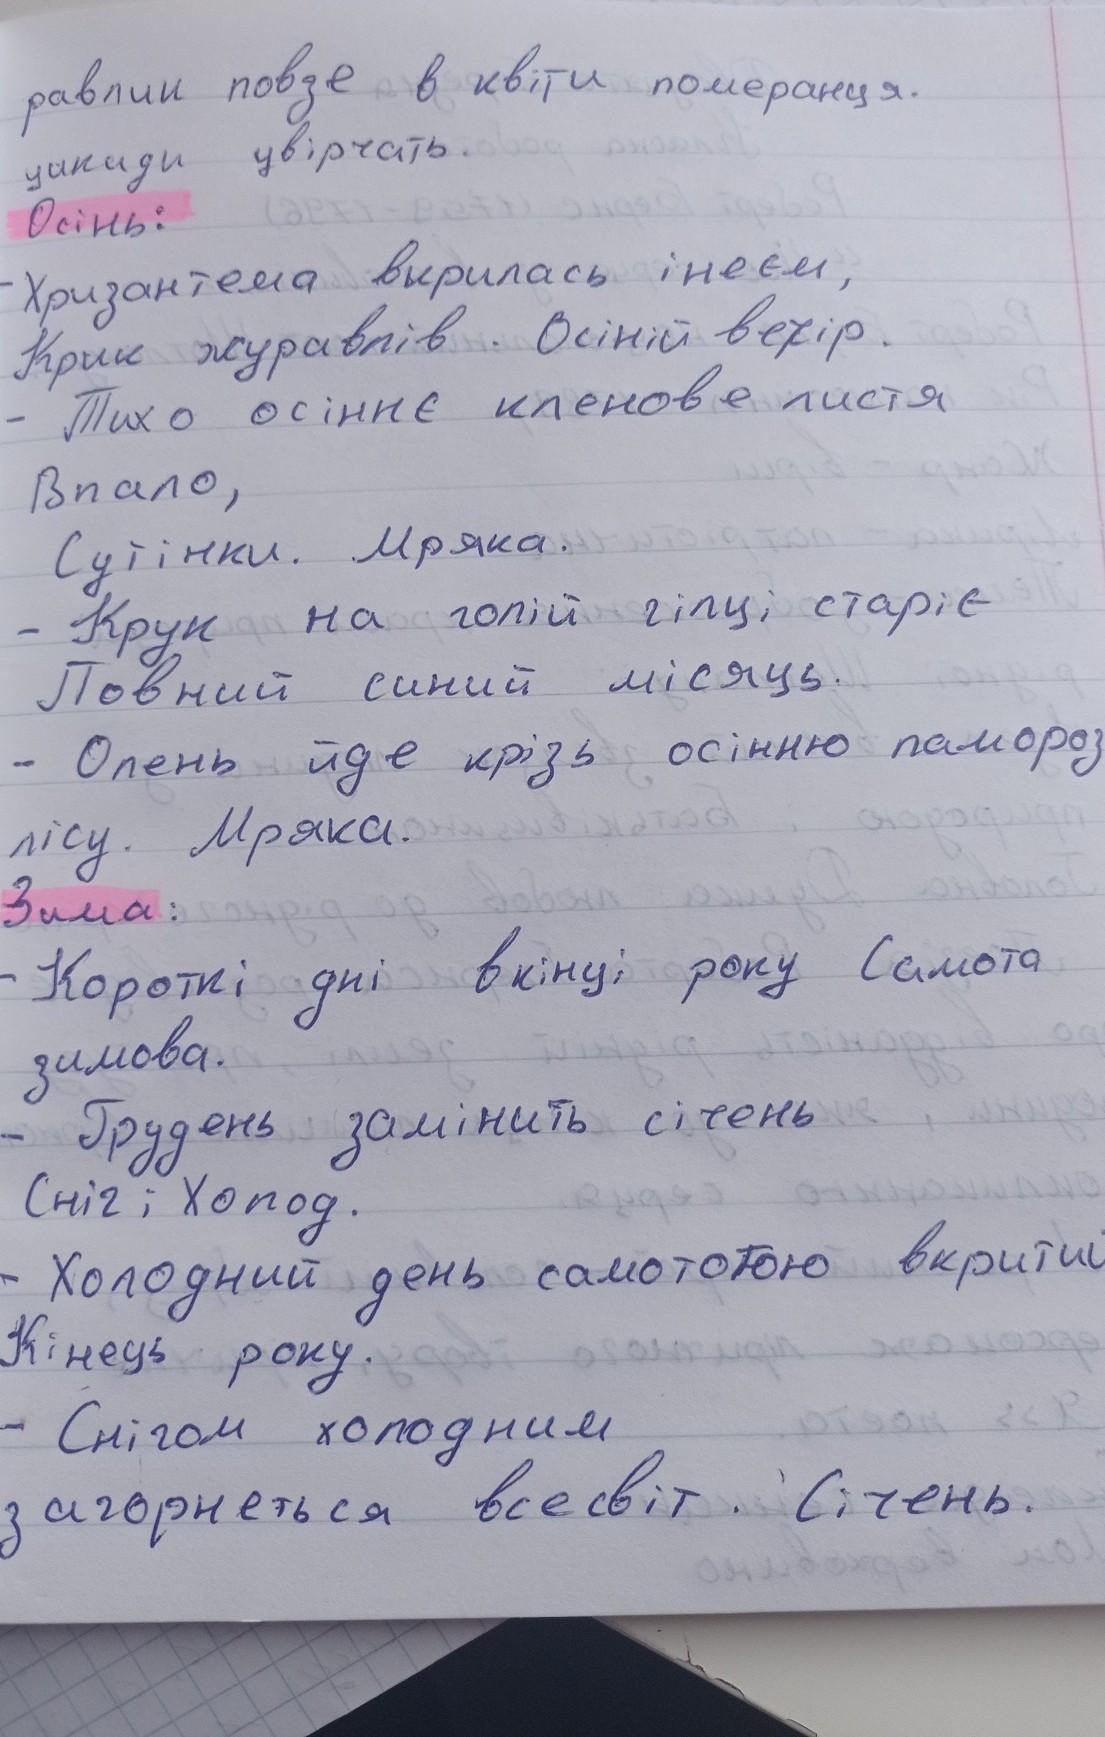 равлик повзе в квіти померанця.
цикади цвірчать.
Осінь:
- Хризантема вкрилась інеєм,
Крик журавлів. Осіній вечір.
- Тихо осіннє кленове листя
Впало,
Сутінки. Мряка.
- Крук на голій гілці старіє
Повний синий місяць.
- Олень йде крізь осінню памороз
лісу. Мряка.
Зима:
- Короткі дні вкінці року Самота
зимова.
- Грудень замінить січень
Сніг і Холод.
- Холодний день самототою вкритий
Кінець року.
- Снігом холодним
загорнеться всесвіт. Січень.